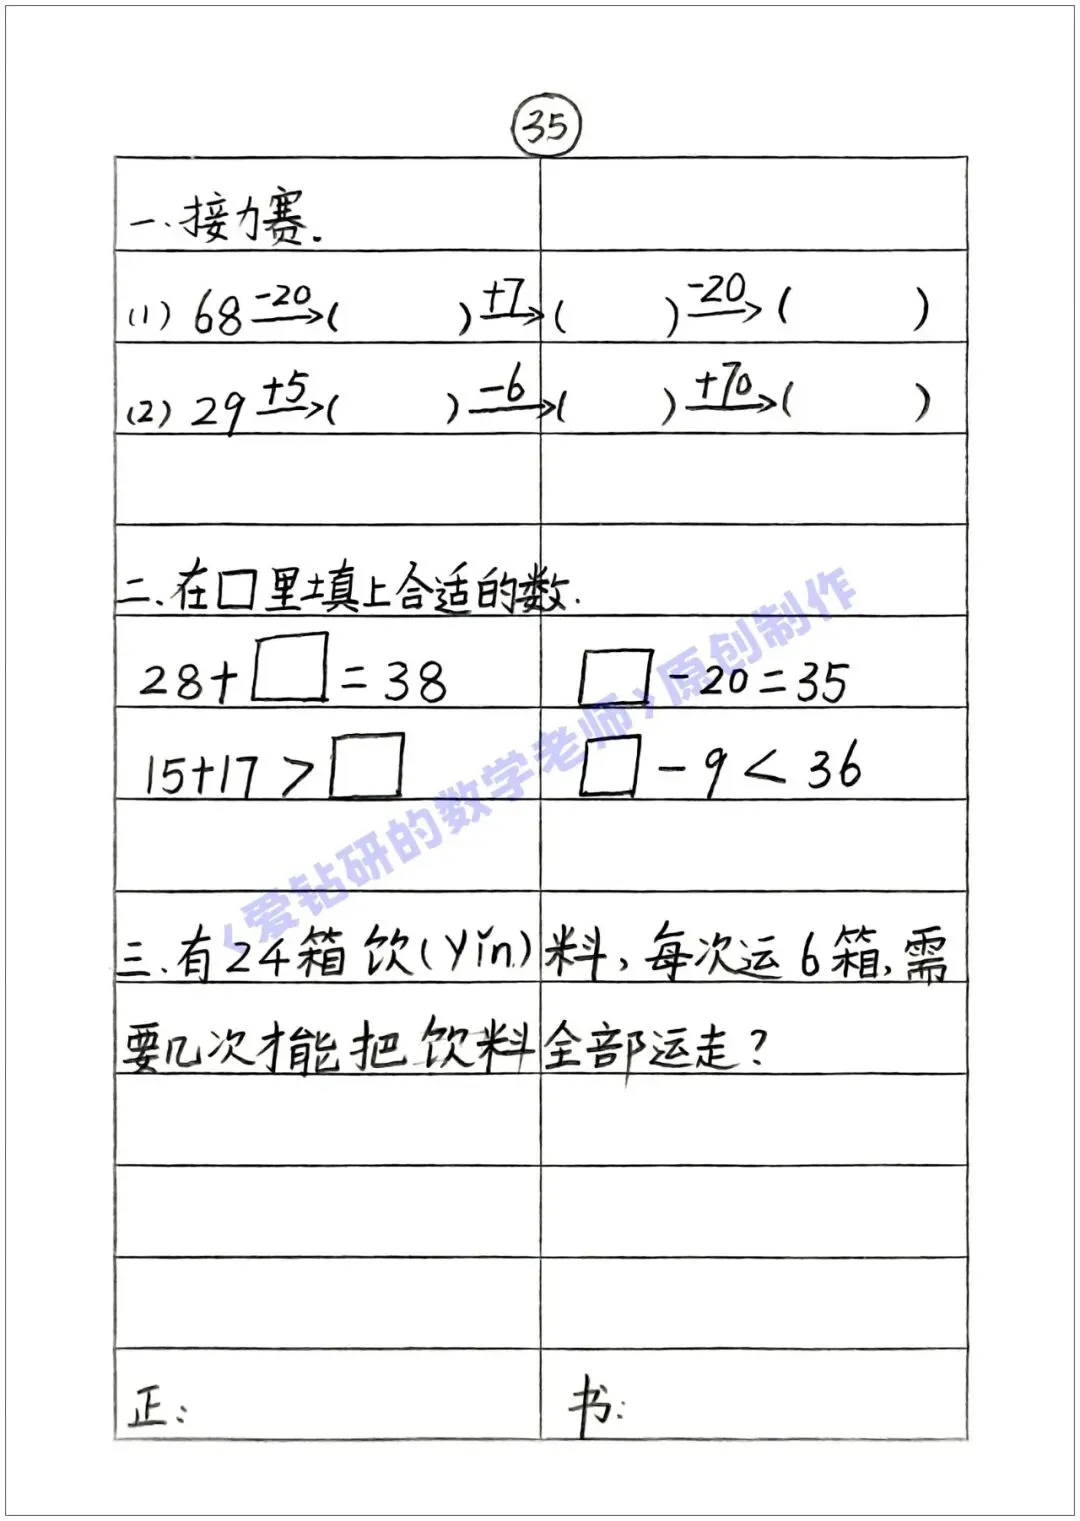 35
一、接力赛.
(1) 68 -20→( ) +7→( ) -20→( )
(2) 29 +5→( ) -6→( ) +70→( )
二、在□里填上合适的数.
28+□=38 □-20=35
15+17>□ □-9<36
《爱钻研的数学老师》原创制作
三、有24箱饮(yǐn)料,每次运6箱,需
要几次才能把饮料全部运走?
正: 书: